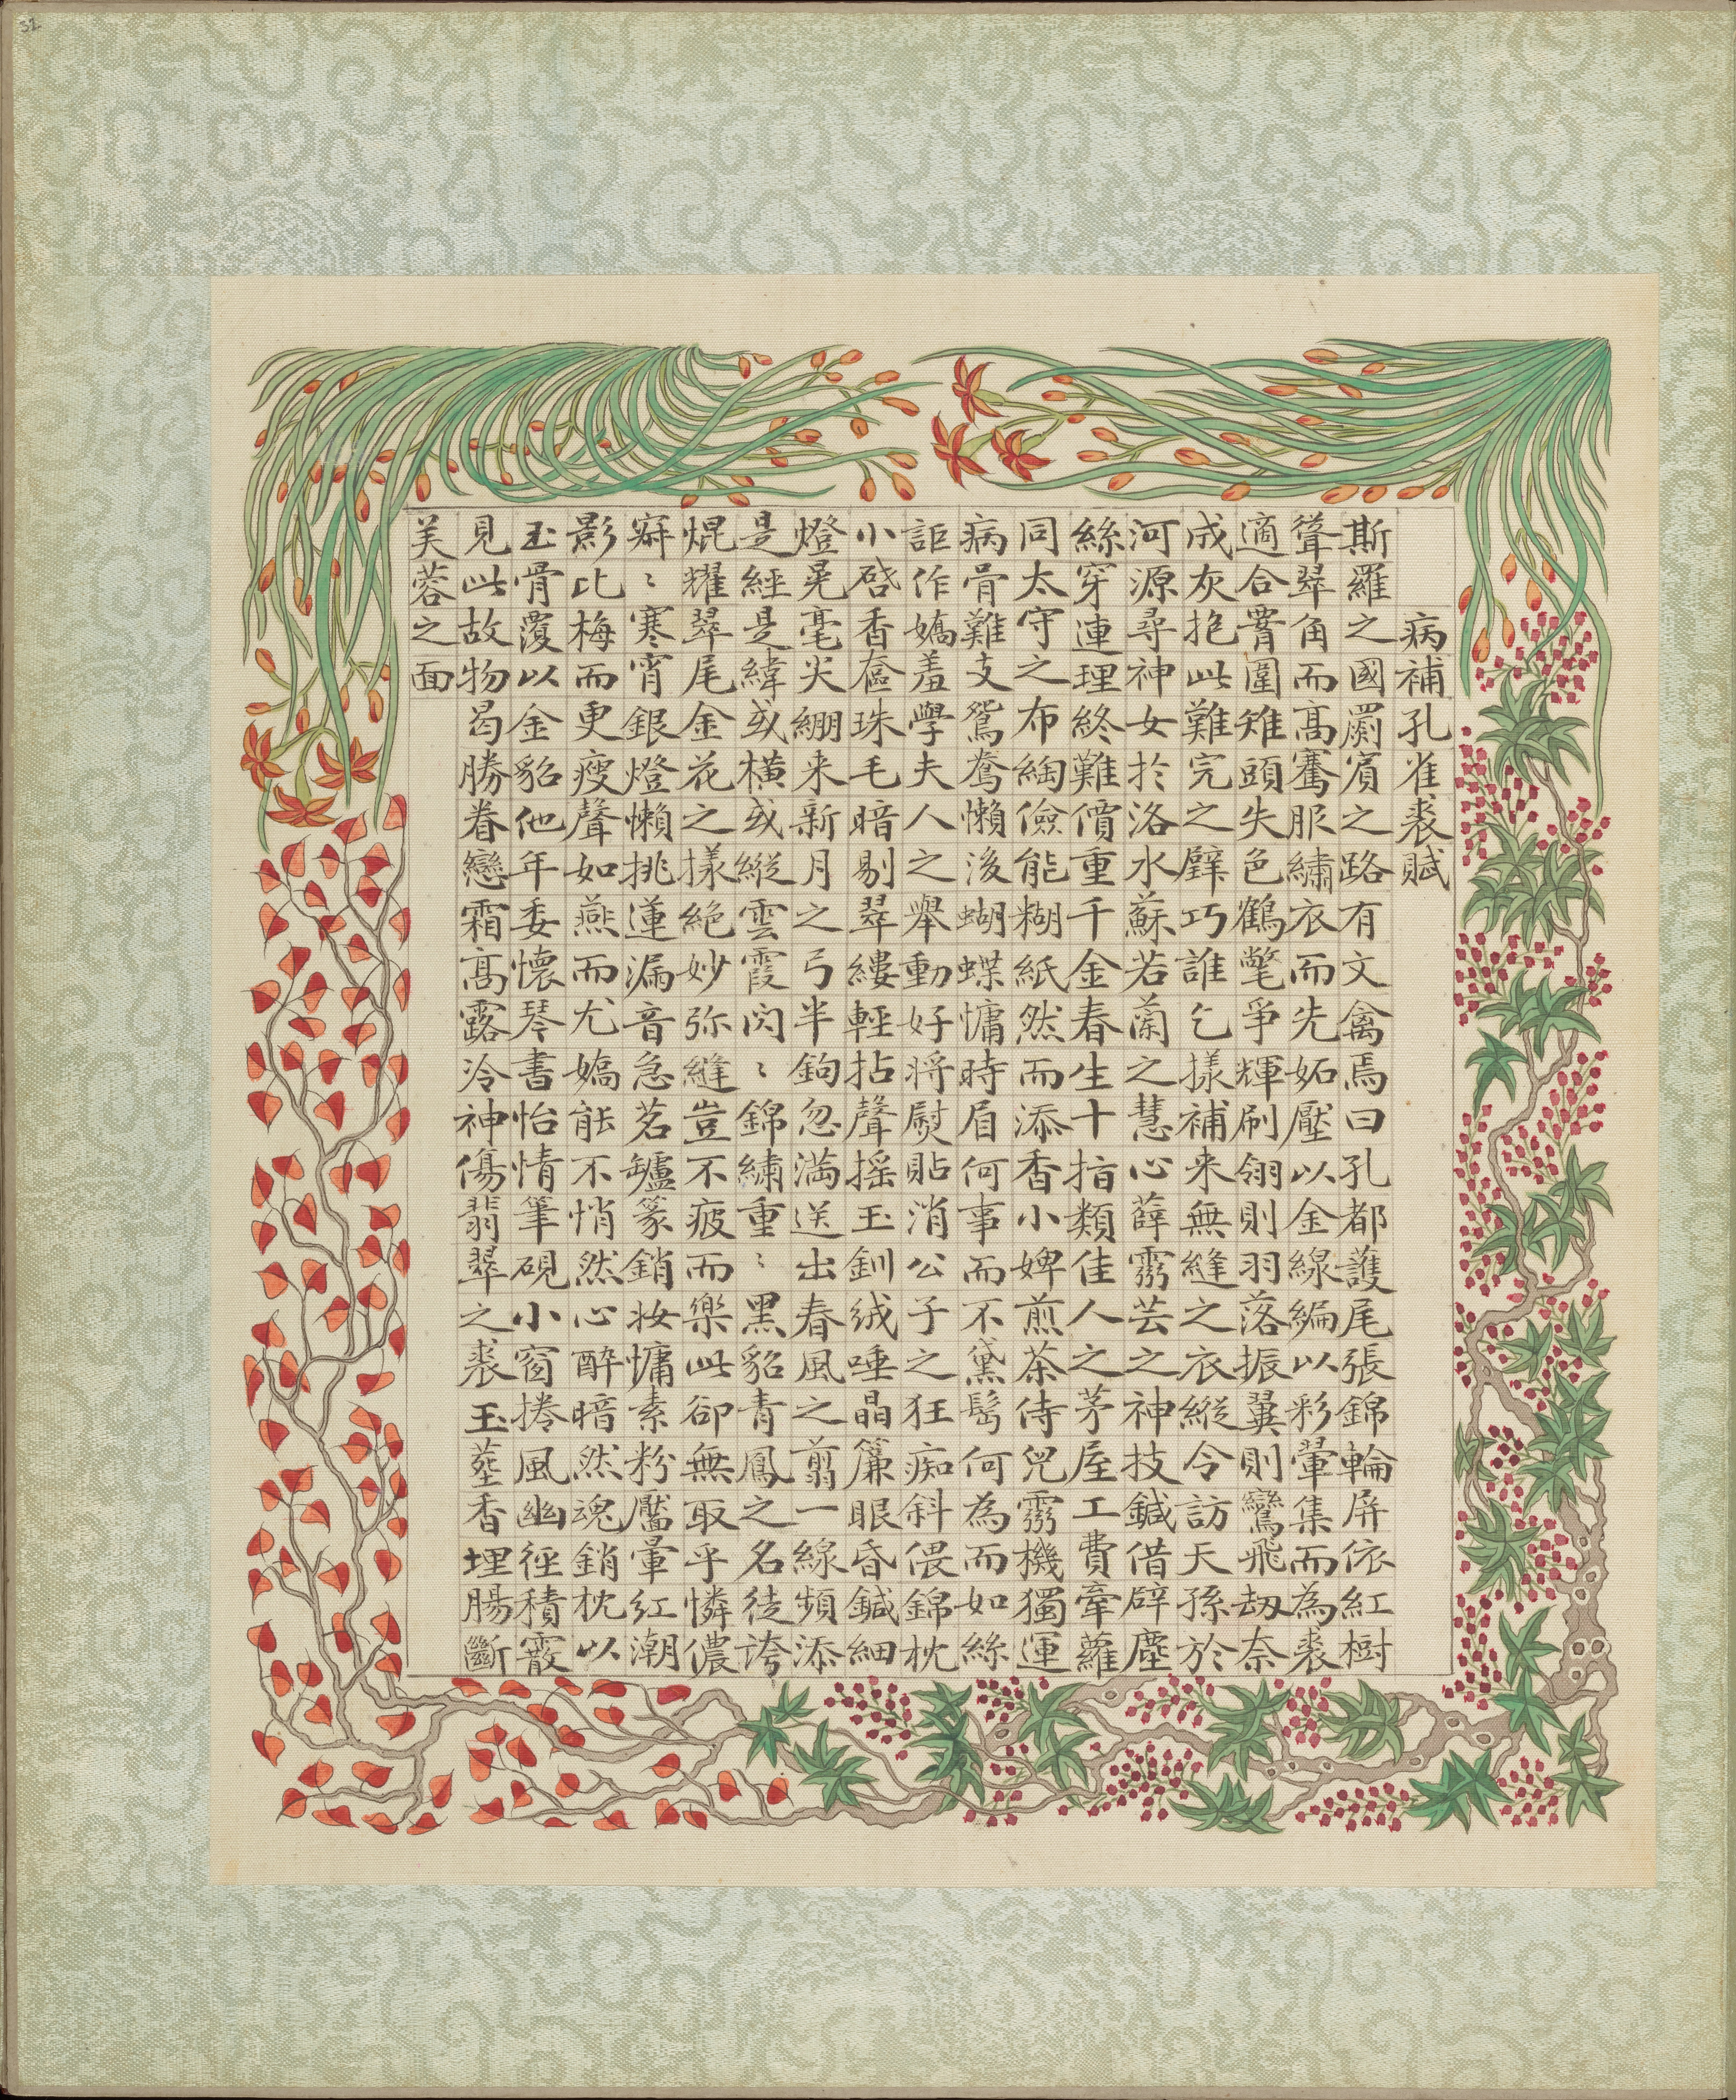 32
病補孔雀裘賦
斯羅之國罽賓之路有文禽焉曰孔都護尾張錦輪屏依紅樹
聳翠角而高騫服繡衣而先妬壓以金線編以彩翬集而為裘
適合霄圍雉頭失色鶴氅爭輝刷翎則羽落振翼則鸞飛刼奈
成灰抱此難完之璧巧誰乞樣補来無縫之衣縱令訪天孫於
河源尋神女於洛水蘇若蘭之慧心薛霛芸之神技鍼借辟塵
絲穿連理終難價重千金春生十指類佳人之茅屋工費牽蘿
同太守之布綯儉能糊紙然而添香小婢煎茶侍兒霛機獨運
病骨難支鴛鴦懶浚蝴蝶慵時眉何事而不黛髩何為而如絲
詎作嬌羞學夫人之舉動好将熨貼消公子之狂痴斜偎錦枕
小啓香奩珠毛暗剔翠縷輕拈聲摇玉釧絨唾晶簾眼昏鍼細
燈晃毫尖綳来新月之弓半鉤忽滿送出春風之剪一線頻添
是經是緯或橫或縱雲霞閃〻錦繡重〻黑貂青鳳之名徒誇
焜耀翠尾金花之樣絶妙弥縫豈不疲而樂此卻無取乎憐儂
寂〻寒宵銀燈懶挑蓮漏音急茗罏篆銷妝慵素粉靨暈紅潮
影比梅而更瘦聲如燕而尤嬌能不悄然心醉暗然魂銷枕以
玉骨覆以金貂他年委懷琴書怡情筆硯小窗捲風幽徑積霰
見此故物曷勝眷戀霜高露冷神傷翡翠之裘玉薶香埋腸斷
芙蓉之面